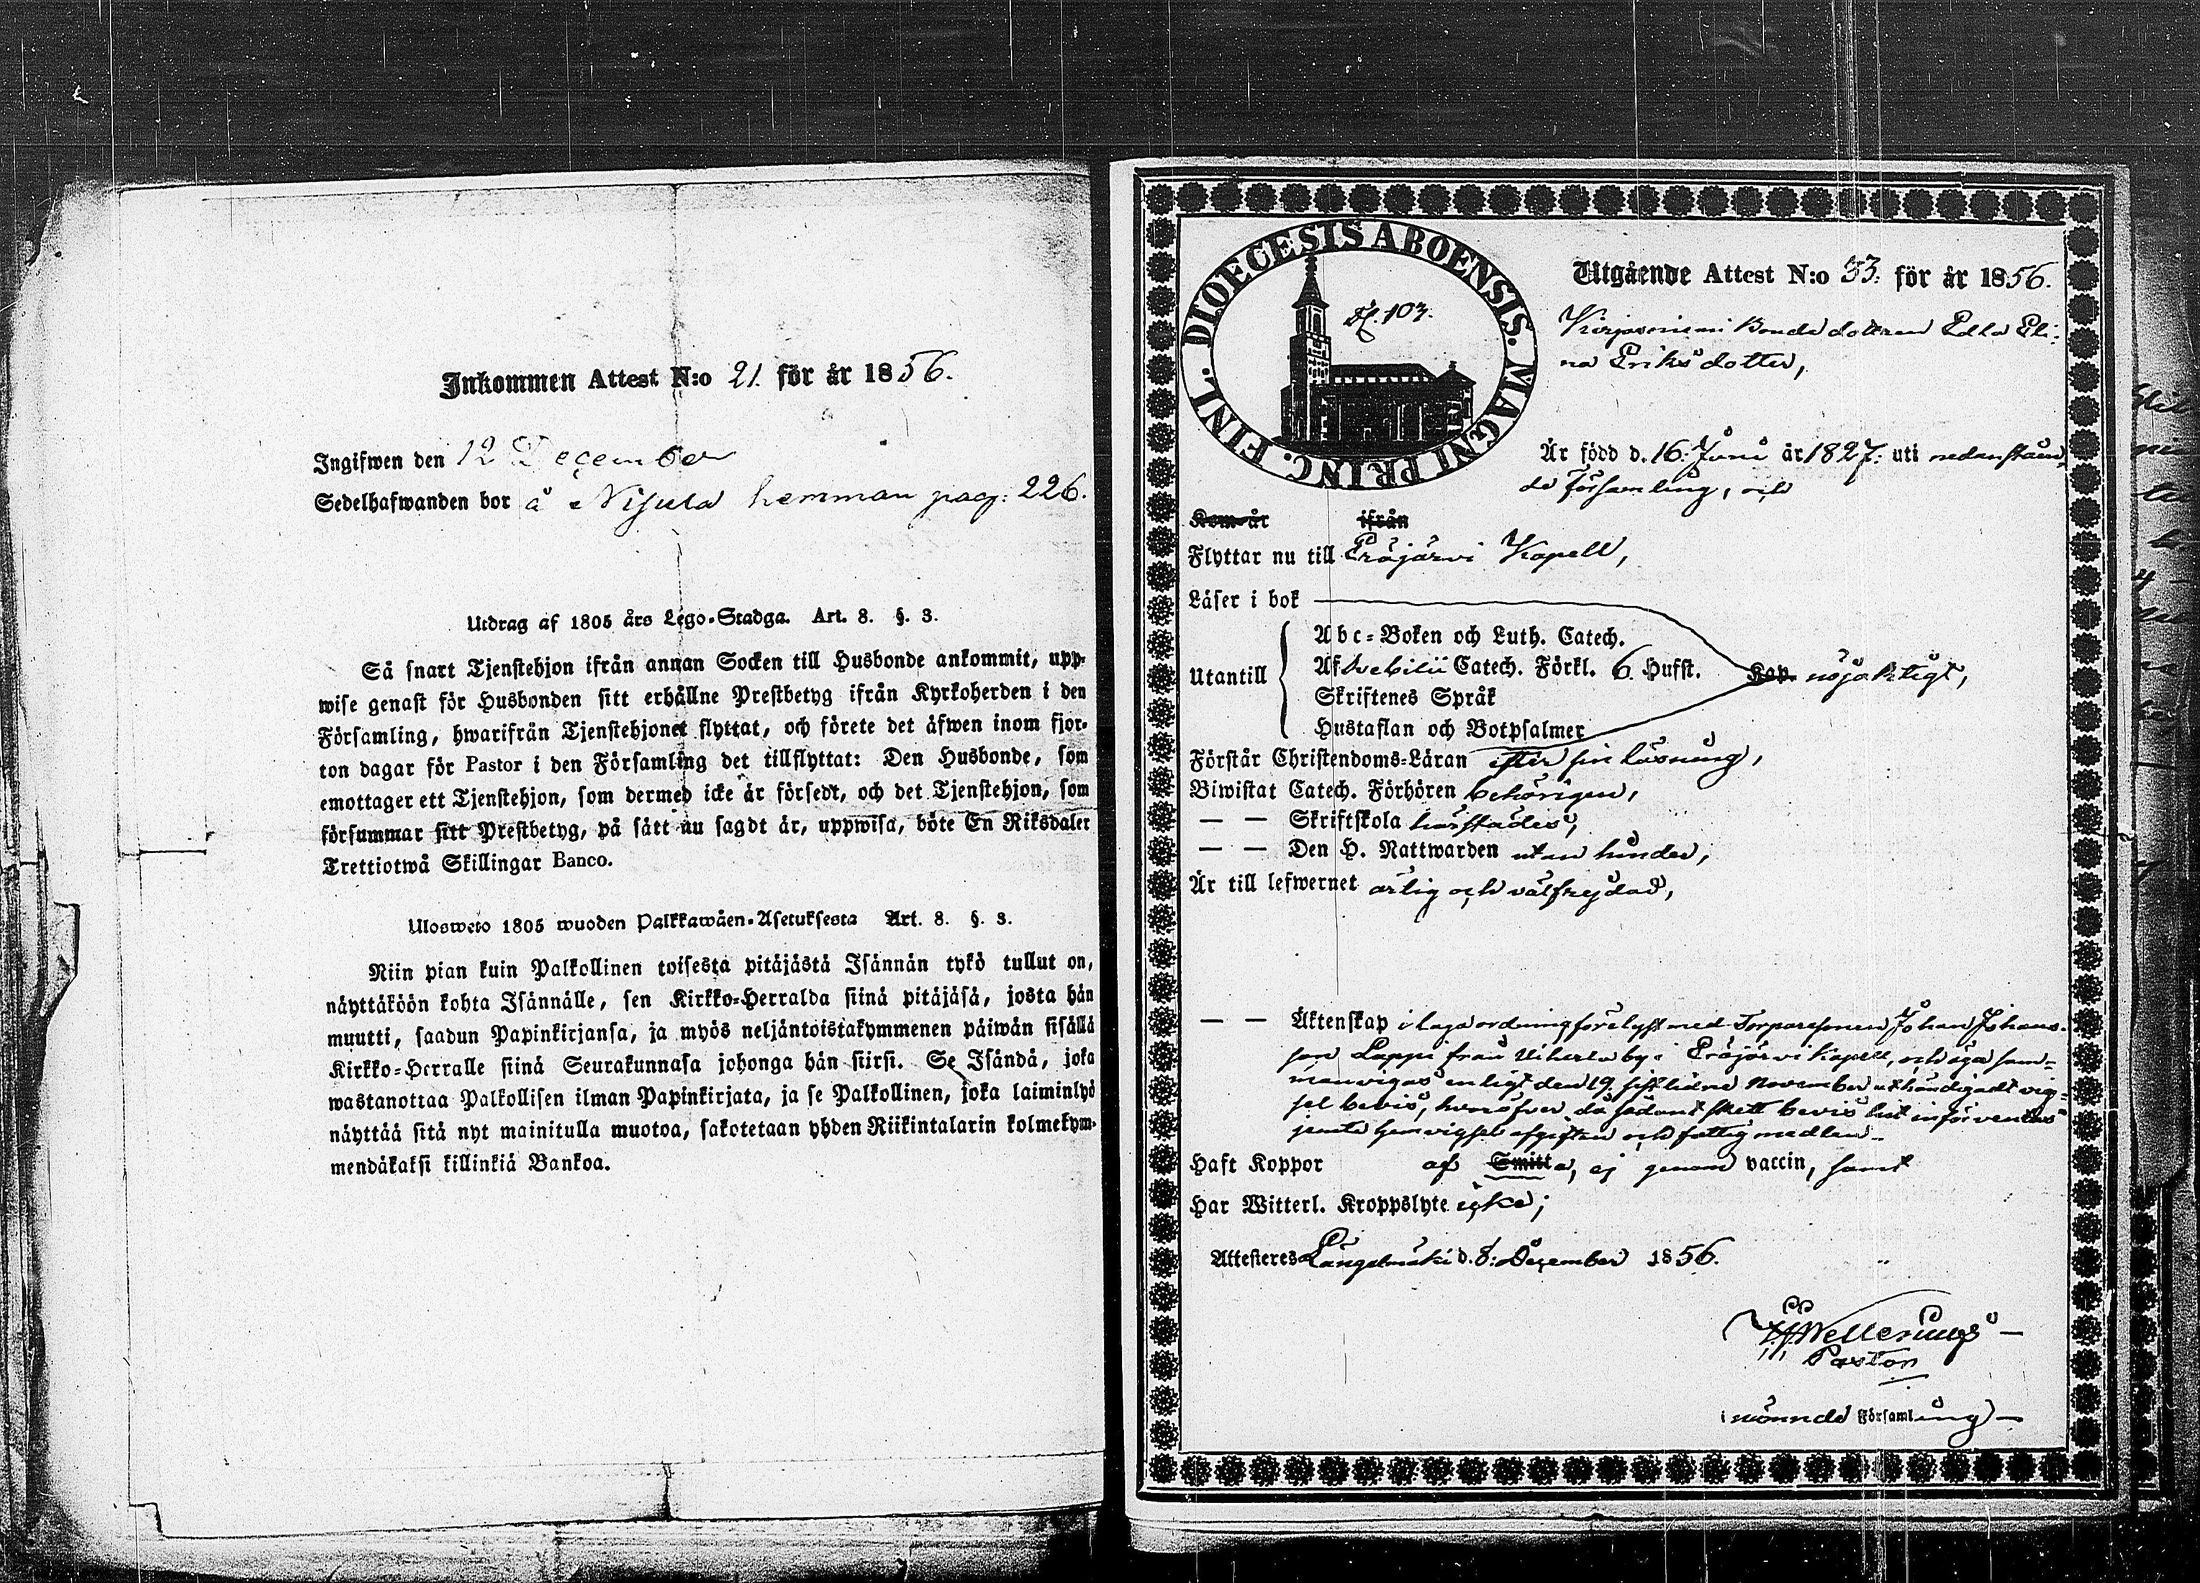 Inkommen Attest N:o 21. för år 1856.
Ingifwen den 12 December
Sedelhafwanden bor å Nisula hemman pag: 226.
Utdrag af 1805 års Lego-Stadga. Art. 8. §. 3.
Så snart Tjenstehjon ifrån annan Socken till Husbonde ankommit, upp-
wise genast för Husbonden sitt erhållne Prestbetyg ifrån Kyrkoherden i den
Församling, hwarifrån Tjenstehjonet flyttat, och förete det äfwen inom fjor-
ton dagar för Pastor i den Församling det tillflyttat: Den Husbonde, som
emottager ett Tjenstehjon, som dermed icke är försedt, och det Tjenstehjon, som
försummar sitt Prestbetyg, på sätt nu sagdt är, uppwisa, böte En Riksdaler
Trettiotwå Skillingar Banco.
Ulosweto 1805 wuoden Palkkawäen-Asetuksesta Art. 8. §. 3.
Niin pian kuin Palkollinen toisesta pitäjästä Isännän tykö tullut on,
näyttäköön kohta Isännälle, sen Kirkko-Herralda siinä pitäjäsä, josta hän
muutti, saadun Papinkirjansa, ja myös neljäntoistakymmenen päiwän sisällä
Kirkko-Herralle siinä Seurakunnasa johonga hän siirsi. Se Isändä, joka
wastanottaa Palkollisen ilman Papinkirjata, ja se Palkollinen, joka laiminlyö
näyttää sitä nyt mainitulla muotoa, sakotetaan yhden Riikintalarin kolmekym-
mendäkaksi killinkiä Bankoa.
DIOECESIS ABOENSIS. MAGNI PRINC. FINL.
103.
Utgående Attest N:o 33. för år 1856.
Kirjasniemi Bonde dottren Edla Eli-
na Eriksdotter,
Är född d. 16: Juni år 1827: uti nedanståen-
de Församling, och
Kom år ifrån
Flyttar nu till Eräjärvi Kapell,
Läser i bok
Utantill
Abc-Boken och Luth. Catech.
Af Svebilii Catech. Förkl. 6 Hufst. Kap. nöjaktigt,
Skriftenes Språk
Hustaflan och Botpsalmer
Förstår Christendoms-Läran efter sin läsning,
Biwistat Catech. Förhören behörigen,
— — Skriftskola härstädes,
— — Den H. Nattwarden utan hinder,
Är till lefwernet ärlig och välfrejdad,
— — Äktenskap i laga ordning förelyst med Torparesonen Johan Johans-
son Lappi från by i Eräjärvi Kapell, och äga sam-
man vigas enligt den 19 sistlidne November uthändigadt vig-
sel bevis, hvaröfver, då sådant skett bevis hit införventas
jemte afgiften och fattig medlen.
Haft Koppor af Smitta, ej genom vaccin, samt
Har Witterl. Kroppslyte icke;
Attesteres Längelmäki d. 8: December 1856.
Wellenius
Pastor
i nämnde Församling